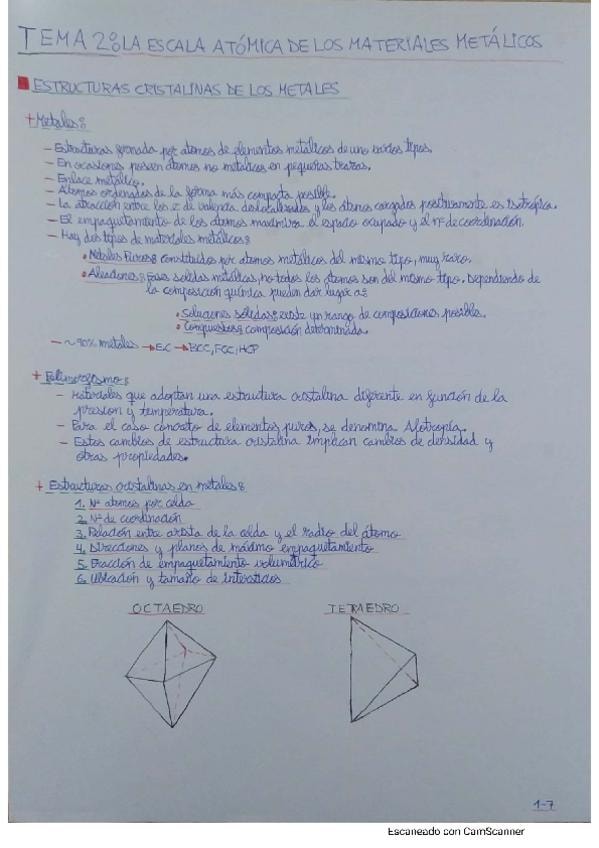 TEMA 2: LA ESCALA ATÓMICA DE LOS MATERIALES METÁLICOS
ESTRUCTURAS CRISTALINAS DE LOS METALES
+ Metales:
– Estructuras formada por átomos de elementos metálicos de uno varios tipos.
– En ocasiones poseen átomos no metálicos en pequeñas trazas.
– Enlace metálico.
– Átomos ordenados de la forma más compacta posible.
– La atracción entre los e⁻ de valencia deslocalizados y los átomos cargados positivamente es isotrópica.
– El empaquetamiento de los átomos maximiza el espacio ocupado y el nº de coordinación.
– Hay dos tipos de materiales metálicos:
• Metales Puros: constituidos por átomos metálicos del mismo tipo, muy raro.
• Aleaciones: fases solidas metálicas, no todos los átomos son del mismo tipo. Dependiendo de
la composición química pueden dar lugar a:
• Soluciones sólidas: existe un rango de composiciones posible.
• Compuestos: composición determinada.
– ~ 90% metales → EC → BCC, FCC, HCP
+ Polimorfismo:
– Materiales que adoptan una estructura cristalina diferente en función de la
presión y temperatura.
– Para el caso concreto de elementos puros, se denomina Alotropía.
– Estos cambios de estructura cristalina implican cambios de densidad y
otras propiedades.
+ Estructuras cristalinas en metales:
1. Nº átomos por celda
2. Nº de coordinación
3. Relación entre arista de la celda y el radio del átomo
4. Direcciones y planos de máximo empaquetamiento
5. Fracción de empaquetamiento volumétrico
6. Ubicación y tamaño de intersticios
OCTAEDRO TETAEDRO
1-7
Escaneado con CamScanner